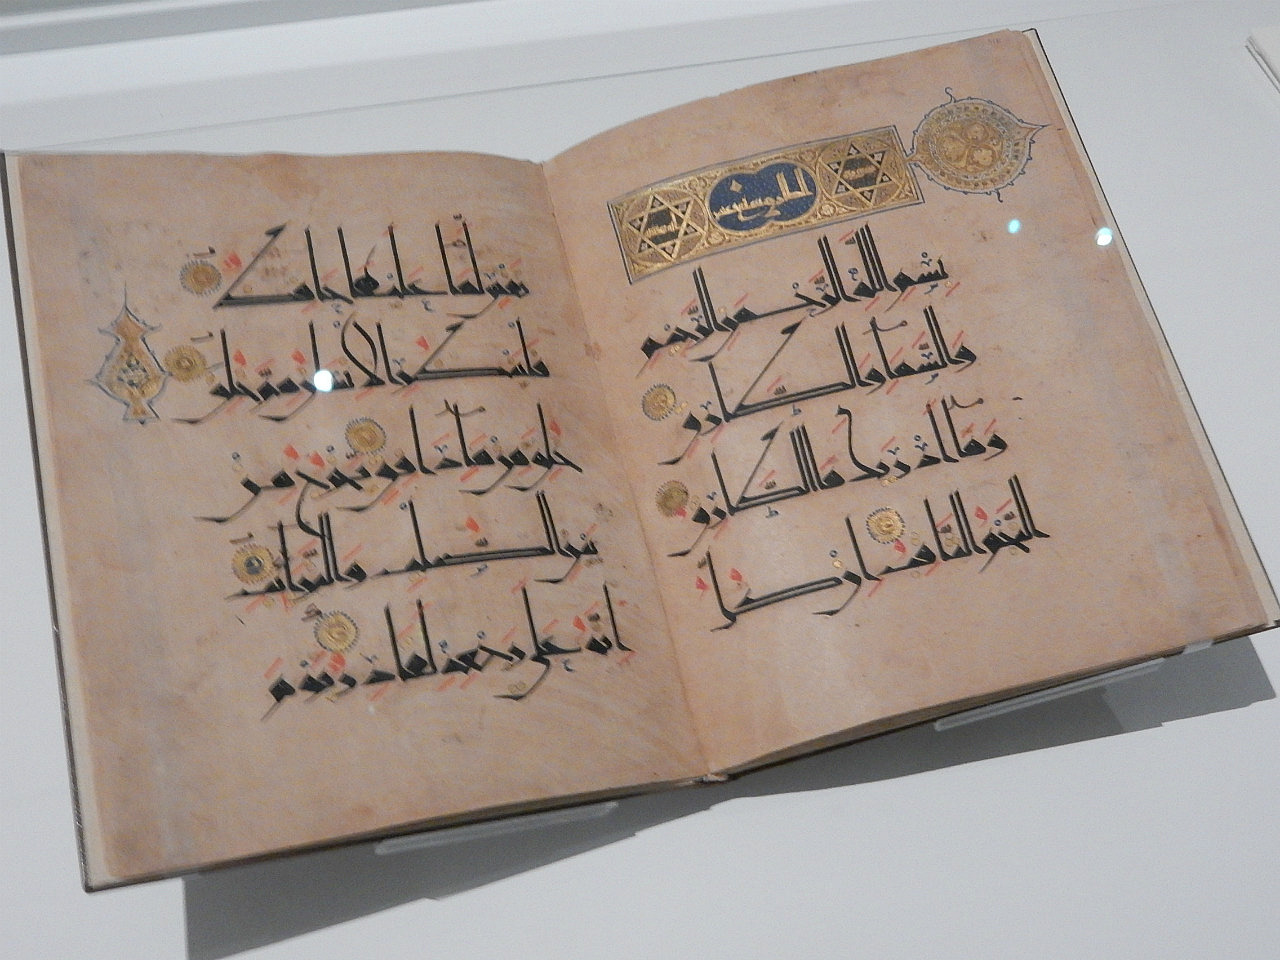 سورة الطارق
بسم الله الرحمن الرحيم
والسماء والطارق
وما أدريك ما الطارق
النجم الثاقب إن كل
نفس لما عليها حافظ
فلينظر الإنسان مم خلق
خلق من ماء دافق يخرج من
بين الصلب والترائب
إنه على رجعه لقادر يوم